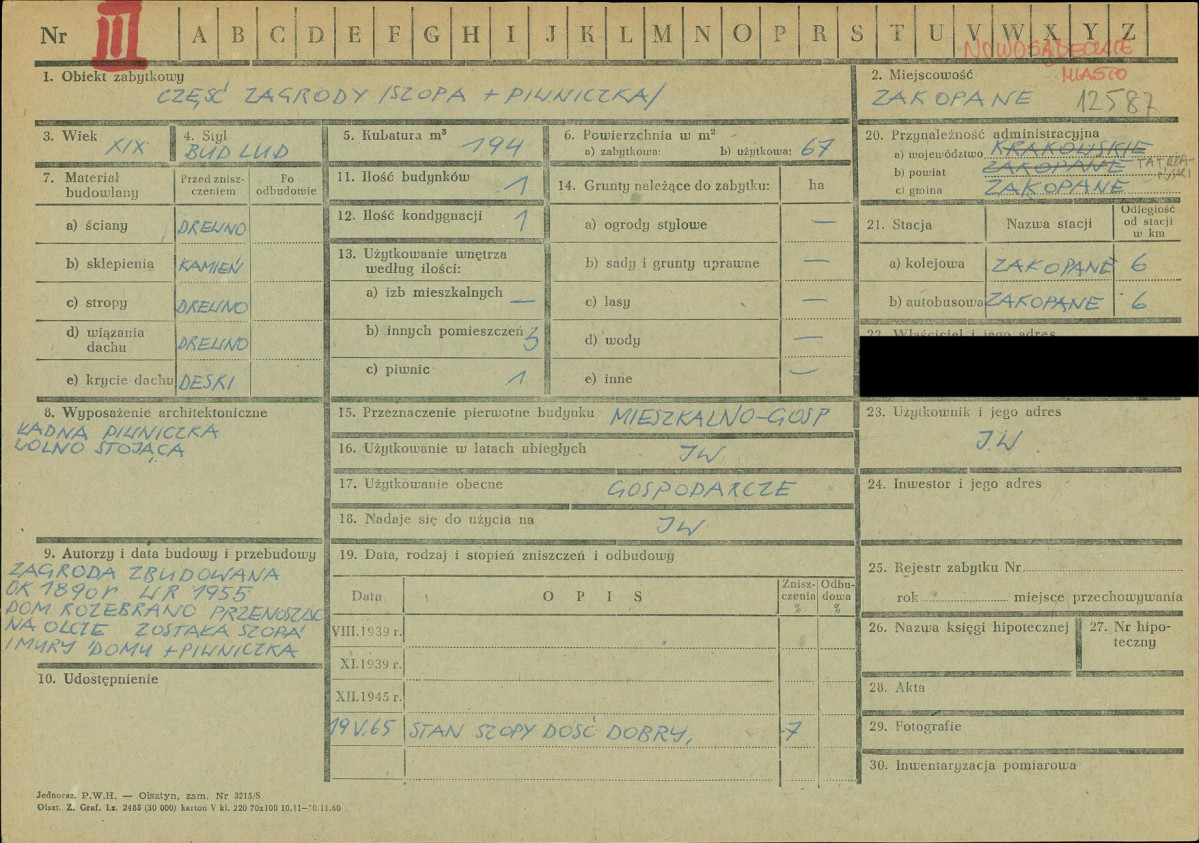 Nr III A B C D E F G H I J K L M N O P R S T U V W X Y Z
NOWOSĄDECKIE
MIASTO
1. Obiekt zabytkowy
CZĘŚĆ ZAGRODY /SZOPA + PIWNICZKA/
2. Miejscowość
ZAKOPANE 12587
3. Wiek
XIX
4. Styl
BUD LUD
5. Kubatura m³
194
6. Powierzchnia w m²
a) zabytkowa: b) użytkowa: 67
20. Przynależność administracyjna
a) województwo KRAKOWSKIE
b) powiat ZAKOPANE TATRZAŃSKI
c) gmina ZAKOPANE
7. Materiał budowlany
Przed zniszczeniem
Po odbudowie
a) ściany DREWNO
b) sklepienia KAMIEŃ
c) stropy DREWNO
d) wiązania dachu DREWNO
e) krycie dachu DESKI
11. Ilość budynków 1
12. Ilość kondygnacji 1
13. Użytkowanie wnętrza
według ilości:
a) izb mieszkalnych —
b) innych pomieszczeń 3
c) piwnic 1
14. Grunty należące do zabytku: ha
a) ogrody stylowe —
b) sady i grunty uprawne —
c) lasy —
d) wody —
e) inne —
21. Stacja Nazwa stacji Odległość od stacji w km
a) kolejowa ZAKOPANE 6
b) autobusowa ZAKOPANE 6
22. Właściciel i jego adres
8. Wyposażenie architektoniczne
ŁADNA PIWNICZKA
WOLNO STOJĄCA
15. Przeznaczenie pierwotne budynku MIESZKALNO-GOSP
16. Użytkowanie w latach ubiegłych JW
17. Użytkowanie obecne GOSPODARCZE
18. Nadaje się do użycia na JW
23. Użytkownik i jego adres
J.W.
24. Inwestor i jego adres
9. Autorzy i data budowy i przebudowy
ZAGRODA ZBUDOWANA
OK 1890r W R 1955
DOM ROZEBRANO PRZENOSZĄC
NA OLCZE ZOSTAŁA SZOPA
I MURY DOMU + PIWNICZKA
10. Udostępnienie
19. Data, rodzaj i stopień zniszczeń i odbudowy
Data O P I S Zniszczenia % Odbudowa %
VIII.1939 r.
XI.1939 r.
XII.1945 r.
19 V.65 STAN SZOPY DOŚĆ DOBRY, 7
25. Rejestr zabytku Nr
rok miejsce przechowywania
26. Nazwa księgi hipotecznej
27. Nr hipoteczny
28. Akta
29. Fotografie
30. Inwentaryzacja pomiarowa
Jednoraz. P.W.H. — Olsztyn, zam. Nr 3215/S
Olszt. Z. Graf. Lz. 2485 (30 000) karton V kl. 220 70x100 10.11—